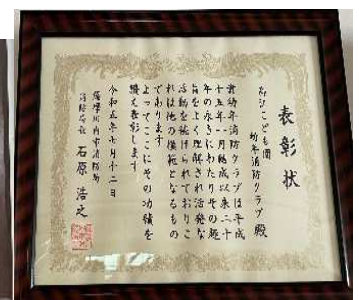 表彰状
幼年消防クラブ殿
貴幼年消防クラブは平成
十五年一月結成以来二十
年の永きにわたりその趣
旨をよく理解され活発な
活動を続けられておりこ
れは他の模範となるもの
であります
よってここにその功績を
讃え表彰します
令和五年七月十二日
薩摩川内市消防局
消防局長 石原浩之